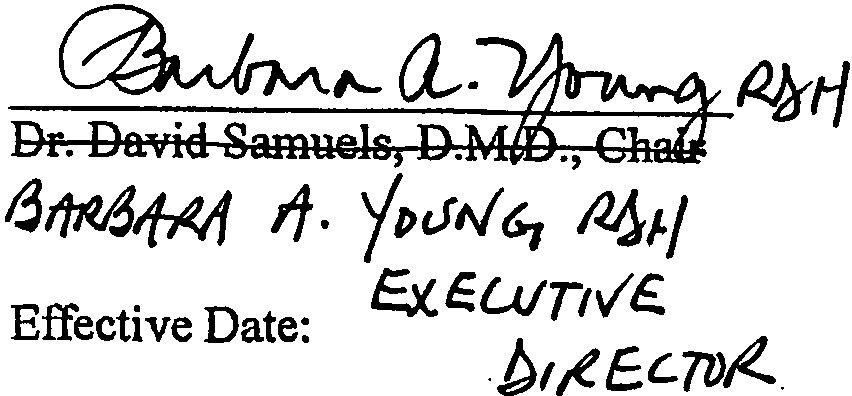 Barbara A. Young RDH
Dr. David Samuels, D.M.D., Chair
BARBARA A. YOUNG, RDH
EXECUTIVE
Effective Date:
DIRECTOR